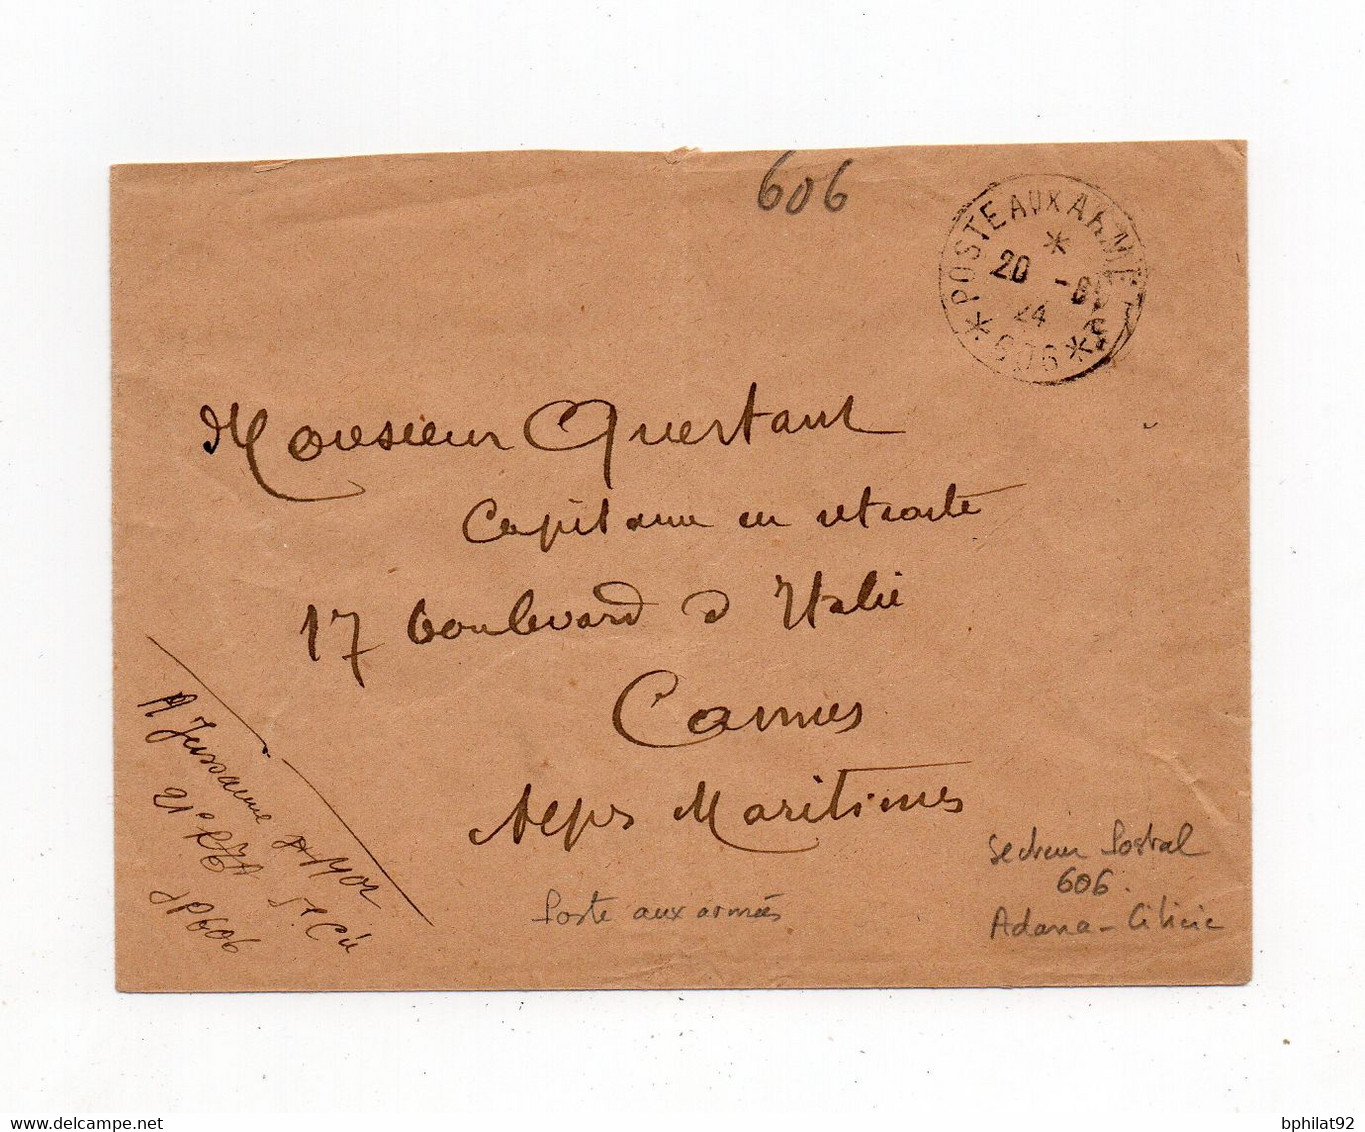 606
POSTE AUX ARMEES
*
20 -
24
* 606 *
Monsieur Quertant
Capitaine en retraite
17 boulevard d Italie
Cannes
Alpes Maritimes
A
21e 5e Cie
SP 606
Poste aux armées
Secteur Postal
606.
Adana - Cilicie
bphilat92